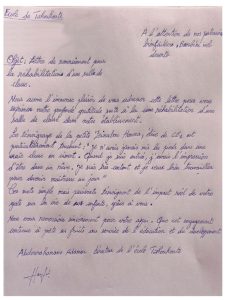 Ecole de Takoukoutt
A l'attention de nos partenaires
bienfaiteurs
Objet: lettre de remerciement pour
la réhabilitation d'une salle de
classe.
Nous avons l'immense plaisir de vous adresser cette lettre pour vous
exprimer notre profonde gratitude suite à la réhabilitation d'une
salle de classe dans notre établissement.
Le témoignage de la petite
particulièrement "je n'avais jamais mis les pieds dans une
vraie classe en ciment. Quand je suis entrée, j'avais l'impression
d'être dans un rêve, je suis très contente et je veux bien travailler
pour devenir maîtresse un jour"
Ces mots simples mais puissants témoignent de l'impact réel de votre
geste sur la vie de nos enfants, grâce à vous.
Nous vous remercions sincèrement pour votre appui. Que cet engagement
continue à porter ses fruits au service de l'éducation et du développement
directeur de l'école Takoukoutt